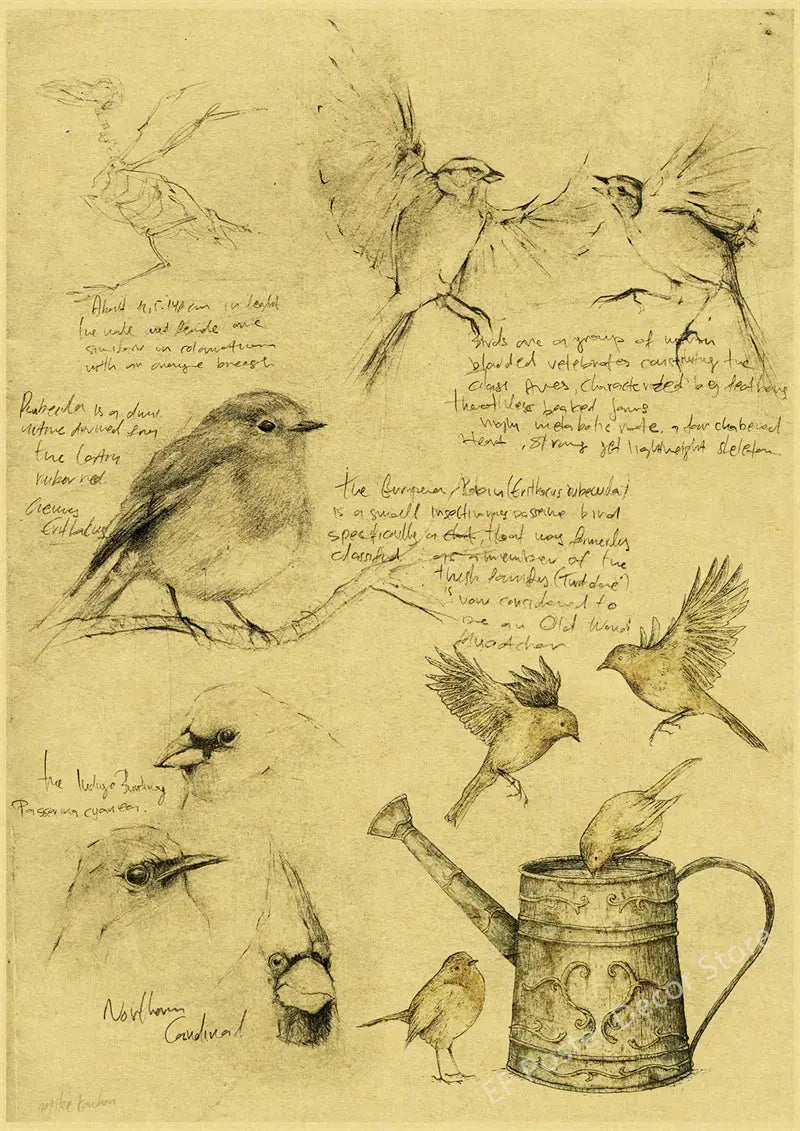 About 12,5-140 cm in leght
the male and female are
similar in coloration
with an orange breast
Birds are a group of
blooded vetebrates constituting the
class Aves, characterized by feathers
toothless beaked jaws
high metabolic rate, a four chabered
Heart, strong yet lightweight skeleton
Rubecula is a
derived from
the Latin
ruber red
Genus
Erithacus
the European Robin (Erithacus rubecula)
is a small insectivorous passerine bird
specifically a chat, that was formerly
classified as a member of the
thrush family (Turdidae)
is now considered to
be an Old World
flycatcher
the Indigo Bunting
Passerina cyanea.
Northern
Cardinal
EF Poster Decor Store